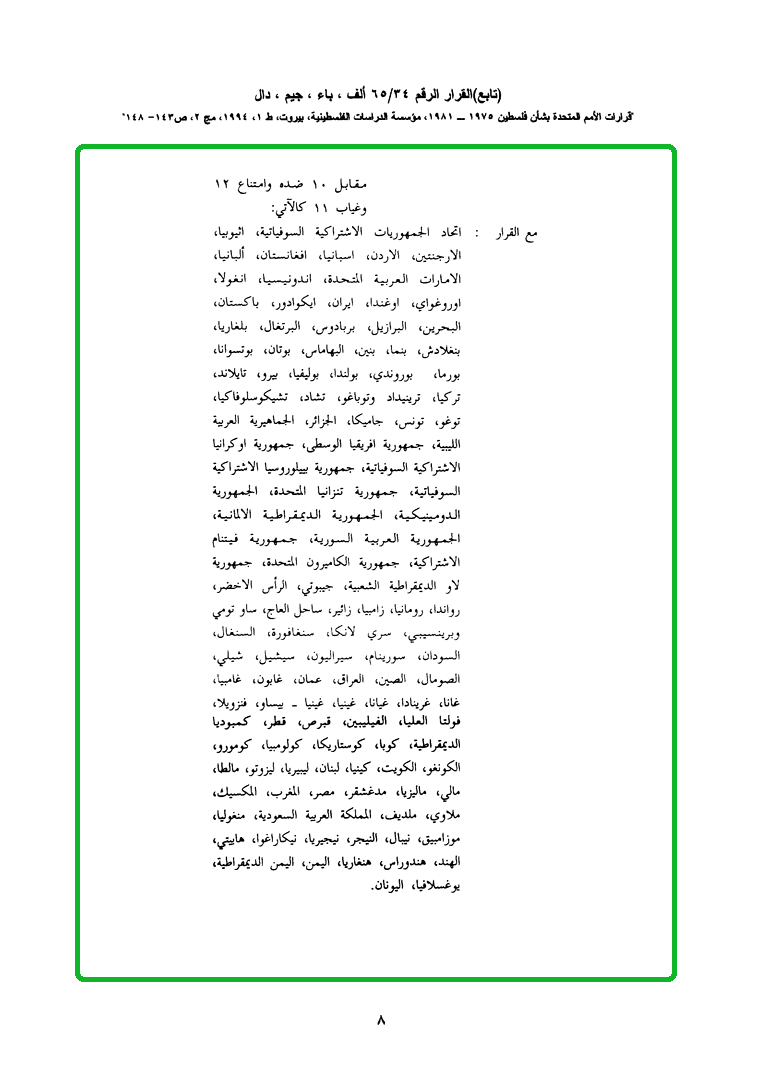 (تابع)القرار الرقم ٦٥/٣٤ ألف ، باء ، جيم ، دال
"قرارات الأمم المتحدة بشأن فلسطين ١٩٧٥ ــ ١٩٨١، مؤسسة الدراسات الفلسطينية، بيروت، ط ١، ١٩٩٤، مج ٢، ص١٤٣- ١٤٨"
مقابل ١٠ ضده وامتناع ١٢
وغياب ١١ كالآتي:
مع القرار : اتحاد الجمهوريات الاشتراكية السوفياتية، اثيوبيا،
الارجنتين، الاردن، اسبانيا، افغانستان، ألبانيا،
الامارات العربية المتحدة، اندونيسيا، انغولا،
اوروغواي، اوغندا، ايران، ايكوادور، باكستان،
البحرين، البرازيل، بربادوس، البرتغال، بلغاريا،
بنغلادش، بنما، بنين، البهاماس، بوتان، بوتسوانا،
بورما، بوروندي، بولندا، بوليفيا، بيرو، تايلاند،
تركيا، ترينيداد وتوباغو، تشاد، تشيكوسلوفاكيا،
توغو، تونس، جاميكا، الجزائر، الجماهيرية العربية
الليبية، جمهورية افريقيا الوسطى، جمهورية اوكرانيا
الاشتراكية السوفياتية، جمهورية بييلوروسيا الاشتراكية
السوفياتية، جمهورية تنزانيا المتحدة، الجمهورية
الدومينيكية، الجمهورية الديمقراطية الالمانية،
الجمهورية العربية السورية، جمهورية فيتنام
الاشتراكية، جمهورية الكاميرون المتحدة، جمهورية
لاو الديمقراطية الشعبية، جيبوتي، الرأس الاخضر،
رواندا، رومانيا، زامبيا، زائير، ساحل العاج، ساو تومي
وبرينسيبي، سري لانكا، سنغافورة، السنغال،
السودان، سورينام، سيراليون، سيشيل، شيلي،
الصومال، الصين، العراق، عمان، غابون، غامبيا،
غانا، غرينادا، غيانا، غينيا، غينيا ـ بيساو، فنزويلا،
فولتا العليا، الفيليبين، قبرص، قطر، كمبوديا
الديمقراطية، كوبا، كوستاريكا، كولومبيا، كومورو،
الكونغو، الكويت، كينيا، لبنان، ليبيريا، ليزوتو، مالطا،
مالي، ماليزيا، مدغشقر، مصر، المغرب، المكسيك،
ملاوي، ملديف، المملكة العربية السعودية، منغوليا،
موزامبيق، نيبال، النيجر، نيجيريا، نيكاراغوا، هاييتي،
الهند، هندوراس، هنغاريا، اليمن، اليمن الديمقراطية،
يوغسلافيا، اليونان.
٨